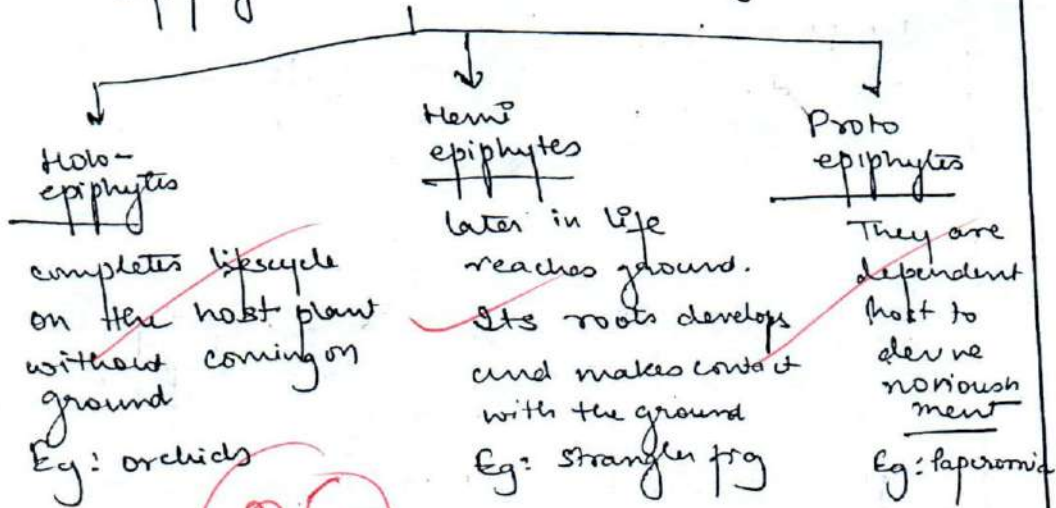 Holo-
epiphytes
completes lifecycle
on the host plant
without coming on
ground
Eg: orchids
Hemi
epiphytes
later in life
reaches ground.
Its roots develops
and makes contact
with the ground
Eg: Strangler fig
Proto
epiphytes
They are
dependent
host to
derive
norioush
ment
Eg: Paperomia